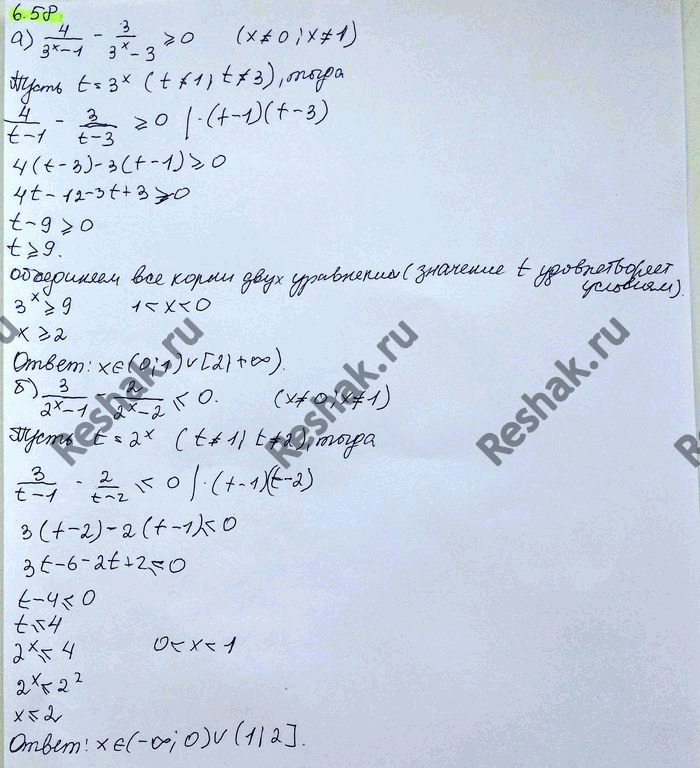 6.58
а) 4/(3^x-1) - 3/(3^x-3) ⩾ 0 (x≠0; x≠1)
Пусть t=3^x (t≠1; t≠3), тогда
4/(t-1) - 3/(t-3) ⩾ 0 |·(t-1)(t-3)
4(t-3)-3(t-1)⩾0
4t-12-3t+3⩾0
t-9⩾0
t⩾9.
Объединяем все корни двух уравнений (значение t удовлетворяет
условиям).
3^x⩾9 1<x<0
x⩾2
Ответ: x∈(0;1)∪[2;+∞).
б) 3/(2^x-1) - 2/(2^x-2) ⩽ 0. (x≠0; x≠1)
Пусть t=2^x (t≠1; t≠2), тогда
3/(t-1) - 2/(t-2) ⩽ 0 |·(t-1)(t-2)
3(t-2)-2(t-1)⩽0
3t-6-2t+2⩽0
t-4⩽0
t⩽4
2^x⩽4 0<x<1
2^x⩽2^2
x⩽2
Ответ: x∈(-∞;0)∪(1;2].
Reshak.ru
Reshak.ru
Reshak.ru